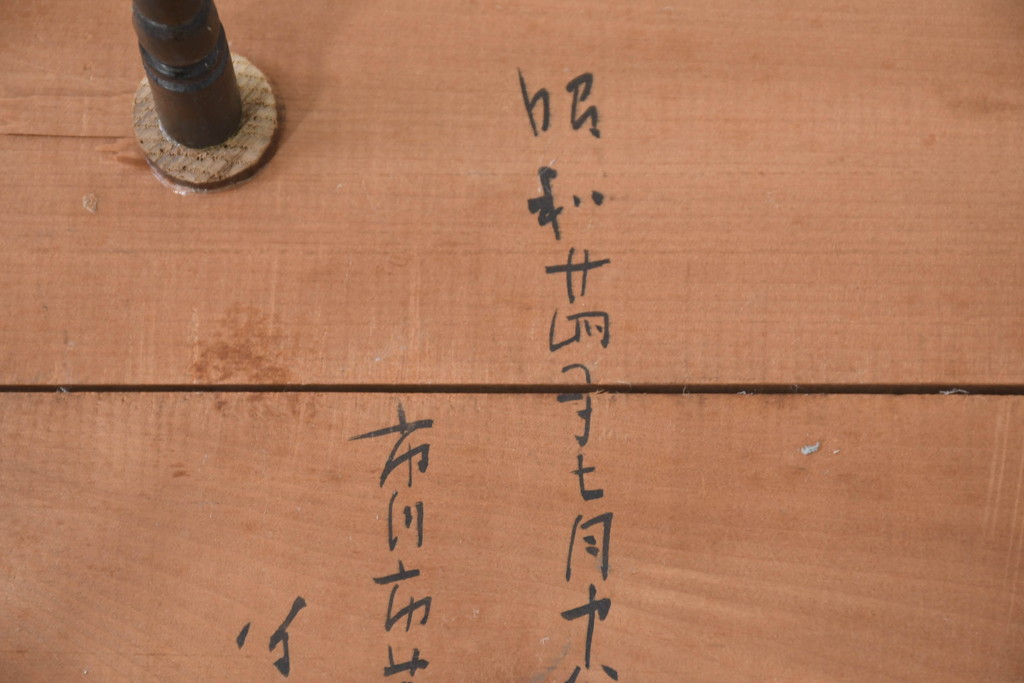 昭和廿四年七月十
市川市